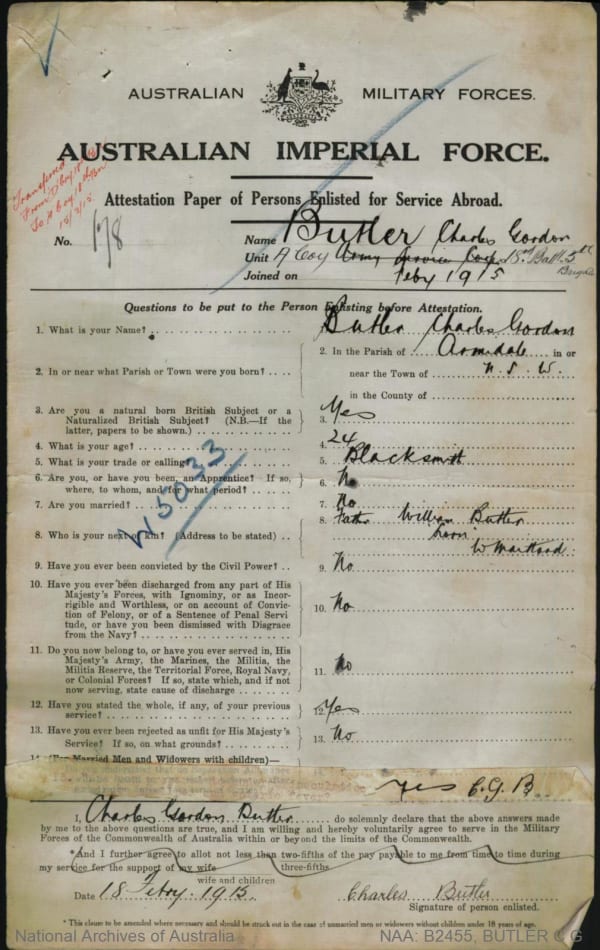 AUSTRALIAN MILITARY FORCES.
AUSTRALIAN IMPERIAL FORCE.
Transferred
To A Coy 18th Bn
15/3/15
Attestation Paper of Persons Enlisted for Service Abroad.
No. 178
Name Butler Charles Gordon
Unit A Coy Army Service Corps 18th Batt. 5th Brigade
Joined on Feby 1915
Questions to be put to the Person Enlisting before Attestation.
1. What is your Name? Butler Charles Gordon
2. In or near what Parish or Town were you born? 2. In the Parish of Armidale in or
near the Town of N. S. W.
in the County of
3. Are you a natural born British Subject or a
Naturalized British Subject? (N.B.—If the
latter, papers to be shown.) 3. Yes
4. What is your age? 4. 24
5. What is your trade or calling? 5. Blacksmith
6. Are you, or have you been, an Apprentice? If so,
where, to whom, and for what period? 6. No
7. Are you married? 7. No
8. Who is your next of kin? (Address to be stated) 8. Father William Butler
Lorn
W Maitland
W5033
9. Have you ever been convicted by the Civil Power? 9. No
10. Have you ever been discharged from any part of His
Majesty's Forces, with Ignominy, or as Incor-
rigible and Worthless, or on account of Convic-
tion of Felony, or of a Sentence of Penal Servi-
tude, or have you been dismissed with Disgrace
from the Navy? 10. No
11. Do you now belong to, or have you ever served in, His
Majesty's Army, the Marines, the Militia, the
Militia Reserve, the Territorial Force, Royal Navy,
or Colonial Forces? If so, state which, and if not
now serving, state cause of discharge 11. No
12. Have you stated the whole, if any, of your previous
service? 12. Yes
13. Have you ever been rejected as unfit for His Majesty's
Service? If so, on what grounds? 13. No
14. (For Married Men and Widowers with children)—
Yes C.G.B.
I, Charles Gordon Butler do solemnly declare that the above answers made
by me to the above questions are true, and I am willing and hereby voluntarily agree to serve in the Military
Forces of the Commonwealth of Australia within or beyond the limits of the Commonwealth.
*And I further agree to allot not less than two-fifths of the pay payable to me from time to time during
three-fifths
my service for the support of my wife
wife and children
Date 18 Febry. 1915 Charles Butler
Signature of person enlisted.
* This clause to be amended where necessary and should be struck out in the case of unmarried men or widowers without children under 18 years of age.
National Archives of Australia NAA: B2455, BUTLER C G